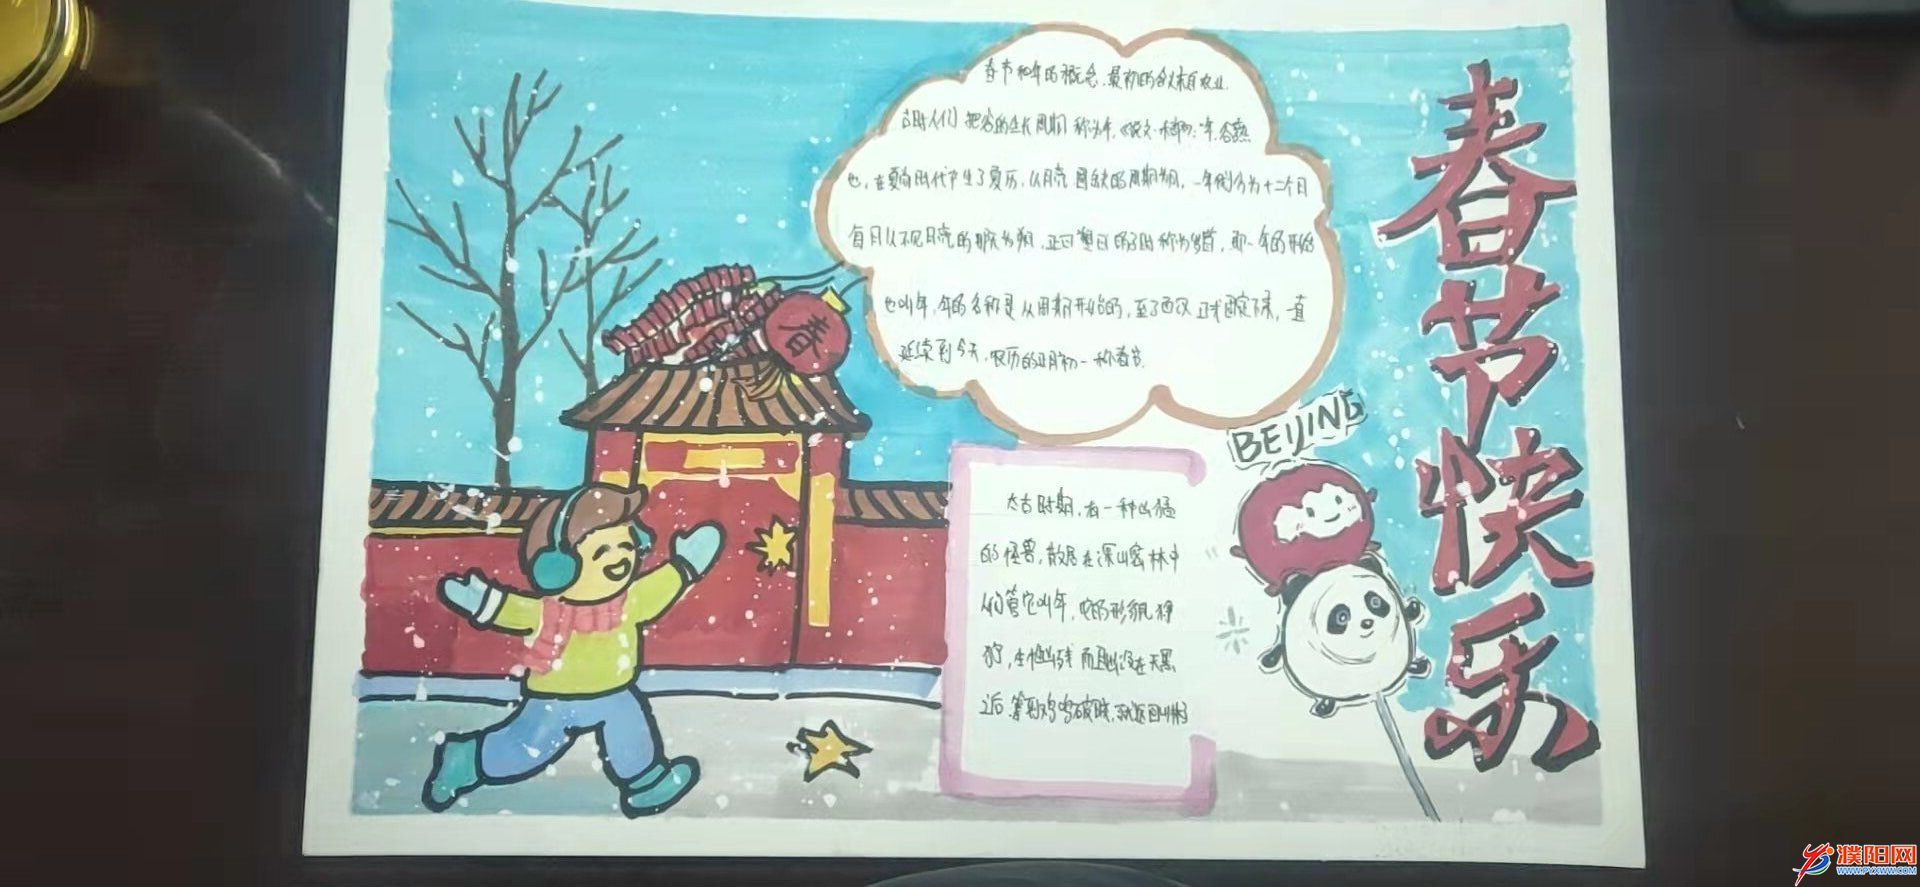 春节快乐
春
春节和年的概念,最初的含义来自农业.
古时人们把谷的生长周期称为年,《说文·禾部》:"年,谷熟
也,在夏商时代产生了夏历,以月亮圆缺的周期为月,一年划分为十二个月
每月以不见月亮的那天为朔,正月朔日的子时称为岁首,即一年的开始
也叫年,年的名称是从周朝开始的,至了西汉正式固定下来,一直
延续到今天,农历的正月初一称春节.
BEIJING
太古时期,有一种凶猛
的怪兽,散居在深山密林中
人们管它叫年,它的形貌狰
狞,生性凶残 而且出没在天黑
之后,等到鸡鸣破晓,就返回山林
濮阳网
WWW.PYXWW.COM